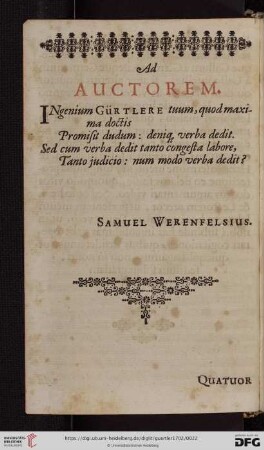 Ad
AUCTOREM.
INgenium GÜRTLERE tuum, quod maxi-
ma doctis
Promisit dudum: deniq, verba dedit.
Sed cum verba dedit tanto congesta labore,
Tanto judicio: num modo verba dedit?
SAMUEL WERENFELSIUS.
QUATUOR
UNIVERSITÄTS-
BIBLIOTHEK
HEIDELBERG
https://digi.ub.uni-heidelberg.de/diglit/guertler1702/0022
© Universitätsbibliothek Heidelberg
gefördert durch die
DFG